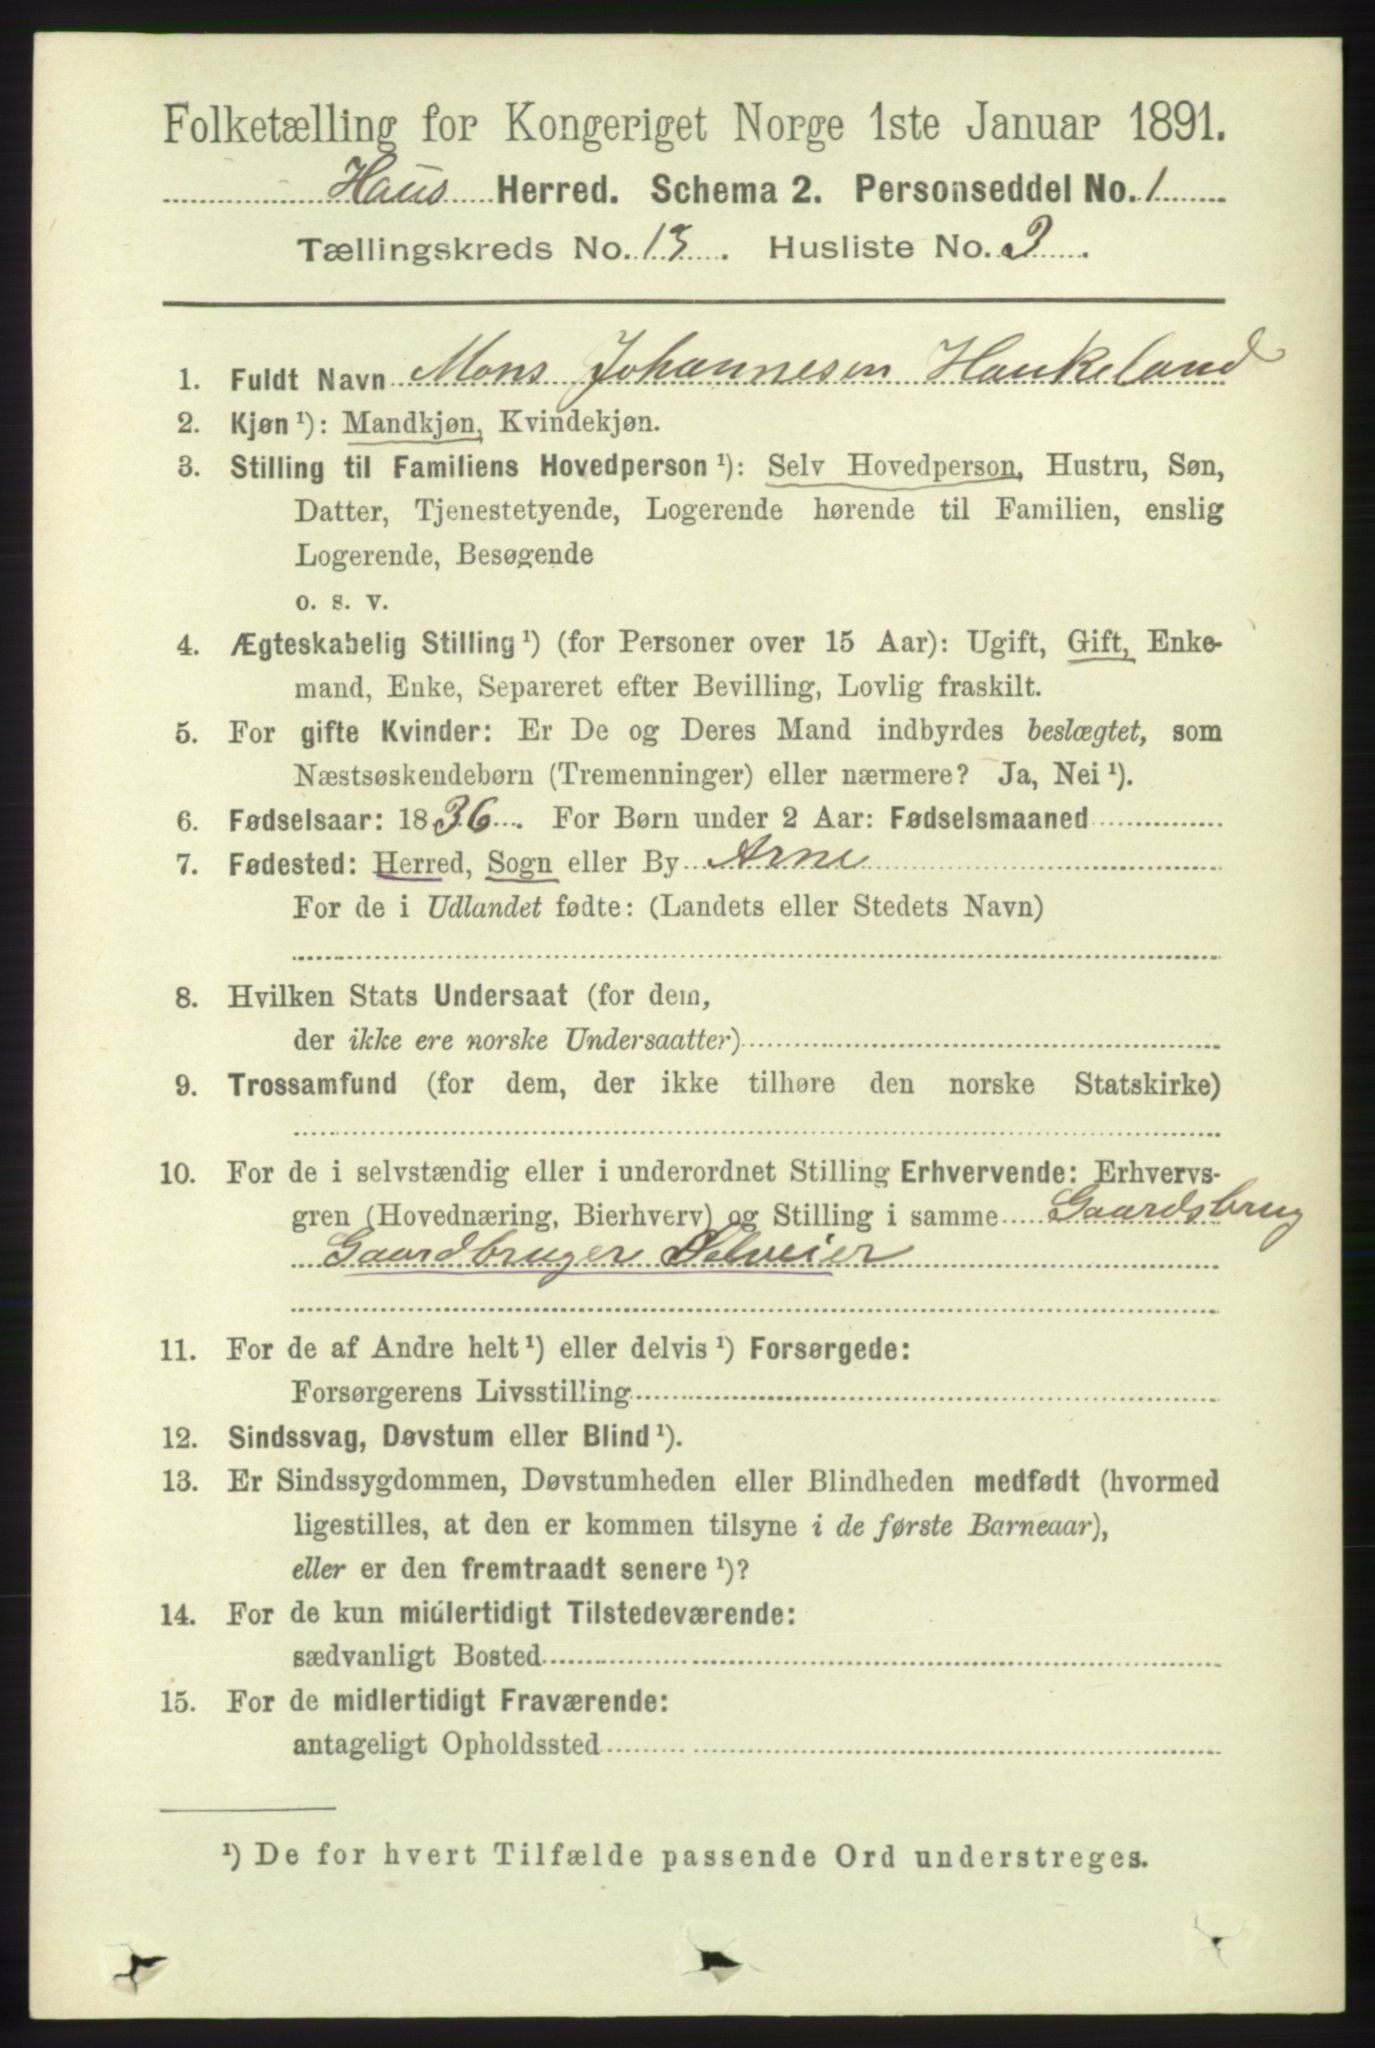 Folketælling for Kongeriget Norge 1ste Januar 1891.
Haus Herred. Schema 2. Personseddel No. 1
Tællingskreds No. 13. Husliste No. 2.
1. Fuldt Navn Mons Johannesen Haukeland
2. Kjøn ¹): Mandkjøn, Kvindekjøn.
3. Stilling til Familiens Hovedperson ¹): Selv Hovedperson, Hustru, Søn,
Datter, Tjenestetyende, Logerende hørende til Familien, enslig
Logerende, Besøgende
o. s. v.
4. Ægteskabelig Stilling ¹) (for Personer over 15 Aar): Ugift, Gift, Enke-
mand, Enke, Separeret efter Bevilling, Lovlig fraskilt.
5. For gifte Kvinder: Er De og Deres Mand indbyrdes beslægtet, som
Næstsøskendebørn (Tremenninger) eller nærmere? Ja, Nei ¹).
6. Fødselsaar: 1836. For Børn under 2 Aar: Fødselsmaaned
7. Fødested: Herred, Sogn eller By Arne
For de i Udlandet fødte: (Landets eller Stedets Navn)
8. Hvilken Stats Undersaat (for dem,
der ikke ere norske Undersaatter)
9. Trossamfund (for dem, der ikke tilhøre den norske Statskirke)
10. For de i selvstændig eller i underordnet Stilling Erhvervende: Erhvervs-
gren (Hovednæring, Bierhverv) og Stilling i samme Gaardsbrug
Gaardbruger Selveier
11. For de af Andre helt ¹) eller delvis ¹) Forsørgede:
Forsørgerens Livsstilling
12. Sindssvag, Døvstum eller Blind ¹).
13. Er Sindssygdommen, Døvstumheden eller Blindheden medfødt (hvormed
ligestilles, at den er kommen tilsyne i de første Barneaar),
eller er den fremtraadt senere ¹)?
14. For de kun midlertidigt Tilstedeværende:
sædvanligt Bosted
15. For de midlertidigt Fraværende:
antageligt Opholdssted
¹) De for hvert Tilfælde passende Ord understreges.